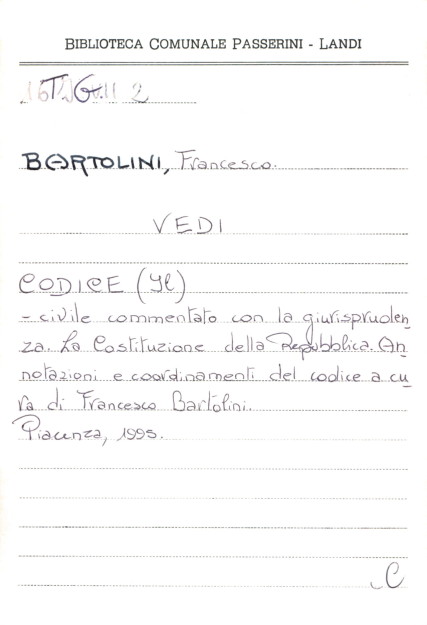 BIBLIOTECA COMUNALE PASSERINI - LANDI
BARTOLINI, Francesco.
VEDI
CODICE (Il)
- civile commentato con la giurispruden
za. La Costituzione della Repubblica. An
notazioni e coordinamenti del codice a cu
ra di Francesco Bartolini.
Piacenza, 1995.
C